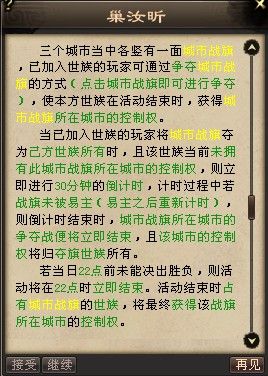 巢汝昕
三个城市当中各竖有一面城市战
旗,已加入世族的玩家可通过争夺城市战
旗的方式(点击城市战旗即可进行争夺
),使本方世族在活动结束时,获得城
市战旗所在城市的控制权。
当已加入世族的玩家将城市战旗夺
为己方世族所有时,且该世族当前未拥
有此城市战旗所在城市的控制权,则立
即进行30分钟的倒计时,计时过程中若
战旗未被易主(易主之后重新计时),
则倒计时结束时,城市战旗所在城市的
争夺战便将立即结束,且该城市的控制
权将归夺旗世族所有。
若当日22点前未能决出胜负,则活
动将在22点时立即结束。活动结束时占
有城市战旗的世族,将最终获得该战旗
所在城市的控制权。
接受 继续 再见